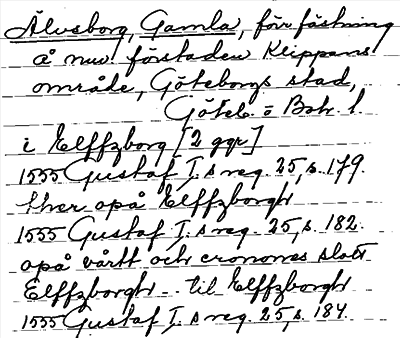 Älvsborg, Gamla, förr fästning
å nuv. förstaden Klippans
område, Göteborgs stad,
Göteb. o Boh. l.
i Elffzborg [2 ggr]
1555 Gustaf I.s reg. 25, s. 179.
her opå Elffzborgh
1555 Gustaf I.s reg. 25, s. 182.
opå vårtt och cronones slott
Elffzborgh - til Elffzborgh
1555 Gustaf I.s reg. 25, s. 184.